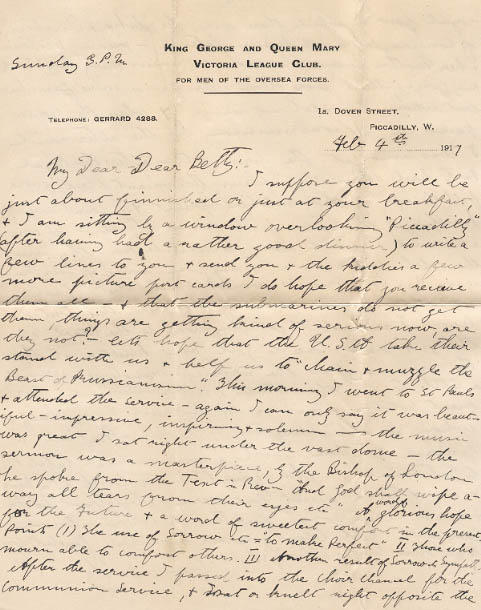 King George and Queen Mary
Victoria League Club.
FOR MEN OF THE OVERSEA FORCES.
Sunday 3. P.M.
TELEPHONE: GERRARD 4288.
DOVER STREET,
PICCADILLY, W.
Feb 4th 1917
My Dear Dear Betty:-
I suppose you will be
just about finnished or just at your breakfast,
& I am sitting by a window overlooking "Piccadilly"
(after having had a rather good dinner) to write a
few lines to you & send you & the kiddies a few
more picture post cards I do hope that you receive
them all - & that the submarines do not get
them, things are getting kind of serious now, are
they not? Lets hope that the U.S.A take their
stand with us & help us to "chain & muzzle the
Beast of Prussianism" This morning I went to St Pauls
& attended the service - again I can only say it was beaut-
iful - impressive, inspiring & solemn - the music
was great I sat right under the vast dome - the
sermon was a masterpiece, by the Bishop of London
he spoke from the Text in Rev. "And God shall wipe a-
way all tears from their eyes etc" A word of glorious hope
for the Future & a word of sweetest comfort in the present
Points (1) The use of Sorrow etc = "to make Perfect" II Those who
mourn able to comfort others. III Another result of Sorrow is Sympat.
After the service I passed into the Choir Chancel for the
Communion Service, & I sat or knelt right opposite the